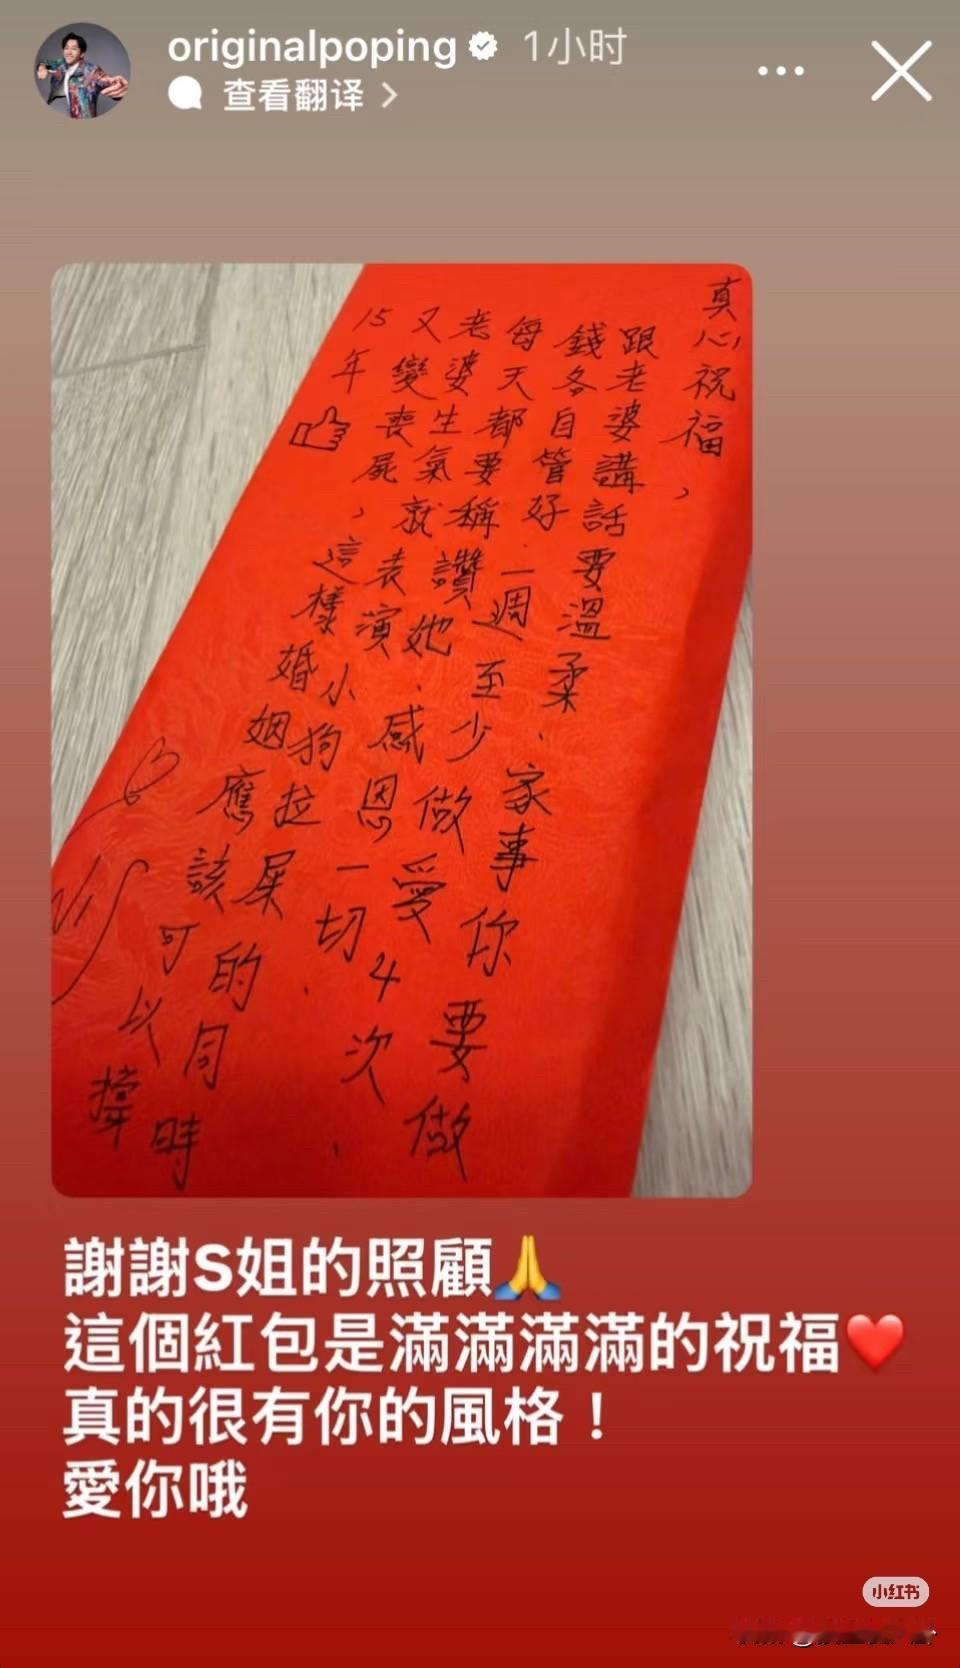 originalpoping 1小时
查看翻译
真心祝福，
跟老婆講話要溫柔．家事你要做
錢各自管好．一週至少做愛4次．
每天都要稱讚她．感恩一切．
老婆生氣就表演小狗拉屎的同時
又變喪屍，這樣婚姻應該可以撐
15年
謝謝S姐的照顧🙏
這個紅包是滿滿滿滿的祝福❤️
真的很有你的風格！
愛你哦
小红书